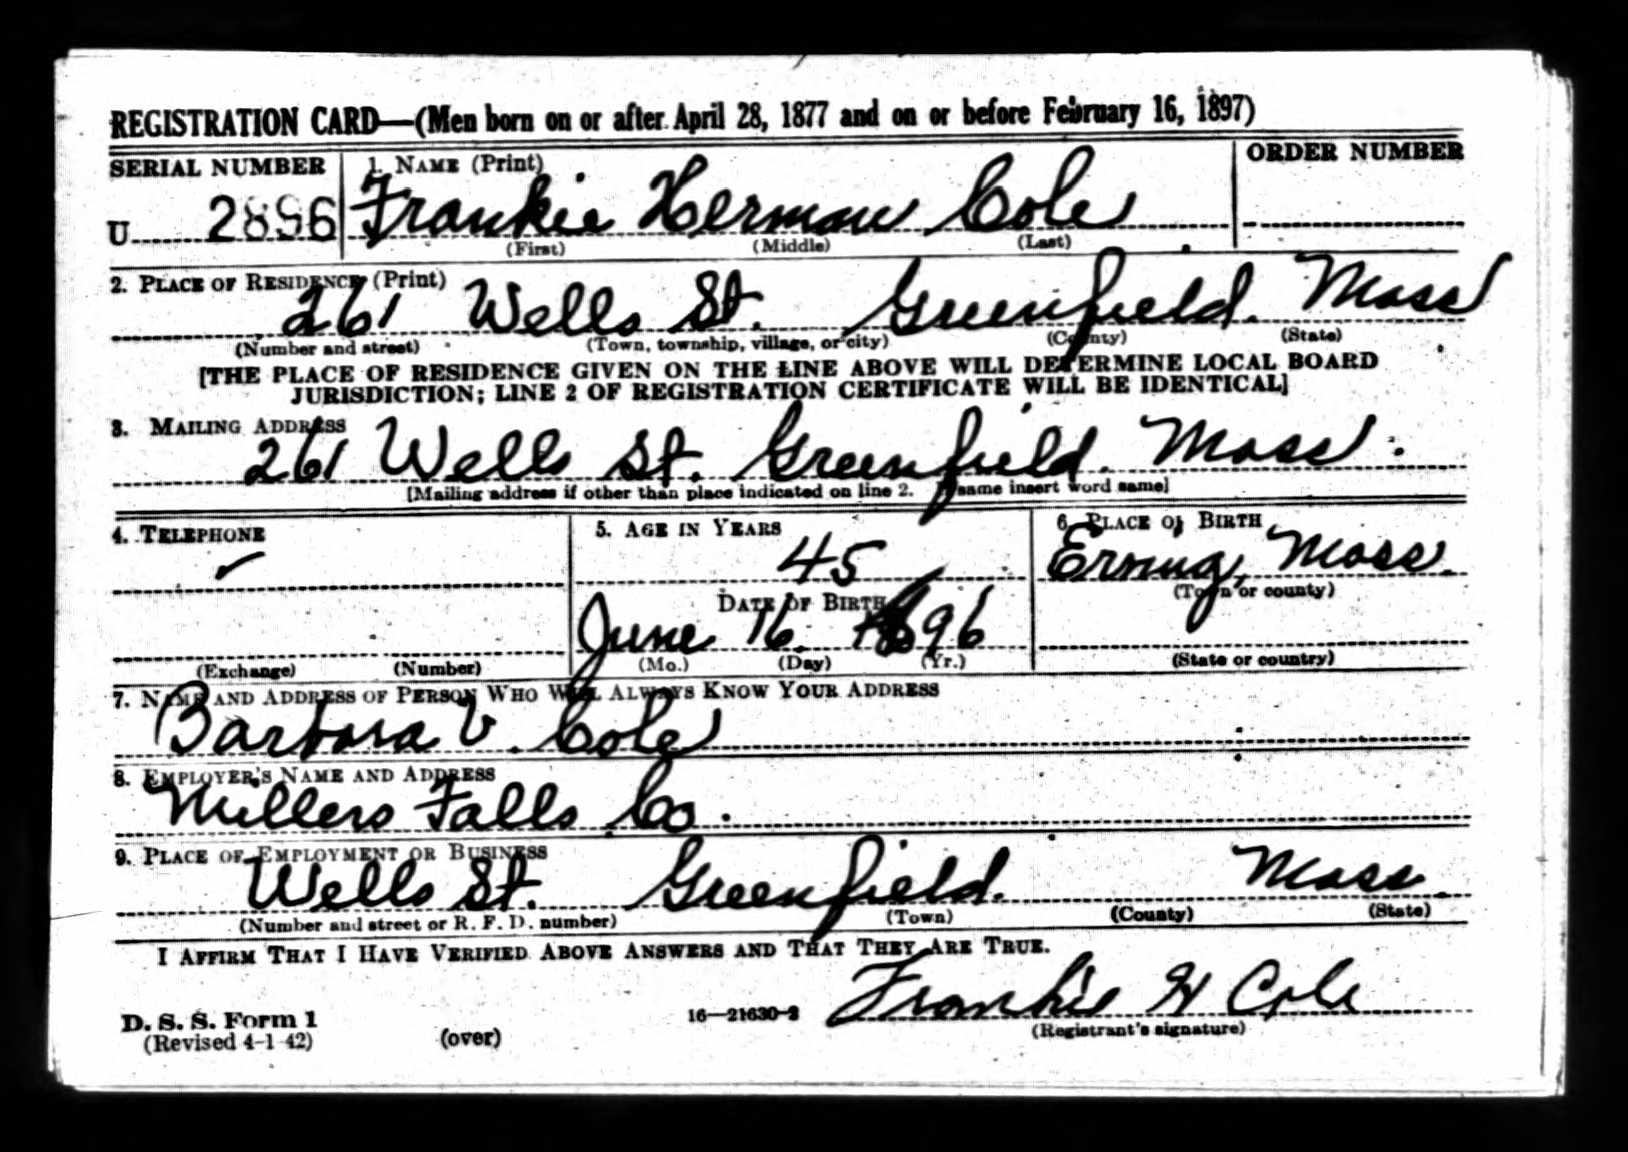 REGISTRATION CARD—(Men born on or after April 28, 1877 and on or before February 16, 1897)
SERIAL NUMBER 1. NAME (Print) ORDER NUMBER
U 2896 Frankie Herman Cole
(First) (Middle) (Last)
2. PLACE OF RESIDENCE (Print)
261 Wells St. Greenfield. Mass
(Number and street) (Town, township, village, or city) (County) (State)
[THE PLACE OF RESIDENCE GIVEN ON THE LINE ABOVE WILL DETERMINE LOCAL BOARD
JURISDICTION; LINE 2 OF REGISTRATION CERTIFICATE WILL BE IDENTICAL]
3. MAILING ADDRESS
261 Wells St. Greenfield. Mass.
[Mailing address if other than place indicated on line 2. If same insert word same]
4. TELEPHONE 5. AGE IN YEARS 6. PLACE OF BIRTH
45 Erving, Mass.
DATE OF BIRTH (Town or county)
June 16. 1896
(Exchange) (Number) (Mo.) (Day) (Yr.) (State or country)
7. NAME AND ADDRESS OF PERSON WHO WILL ALWAYS KNOW YOUR ADDRESS
Barbara V. Cole
8. EMPLOYER'S NAME AND ADDRESS
Millers Falls Co.
9. PLACE OF EMPLOYMENT OR BUSINESS
Wells St. Greenfield. Mass.
(Number and street or R. F. D. number) (Town) (County) (State)
I AFFIRM THAT I HAVE VERIFIED ABOVE ANSWERS AND THAT THEY ARE TRUE.
Frankie H Cole
D. S. S. Form 1 16—21630-2 (Registrant's signature)
(Revised 4-1-42) (over)